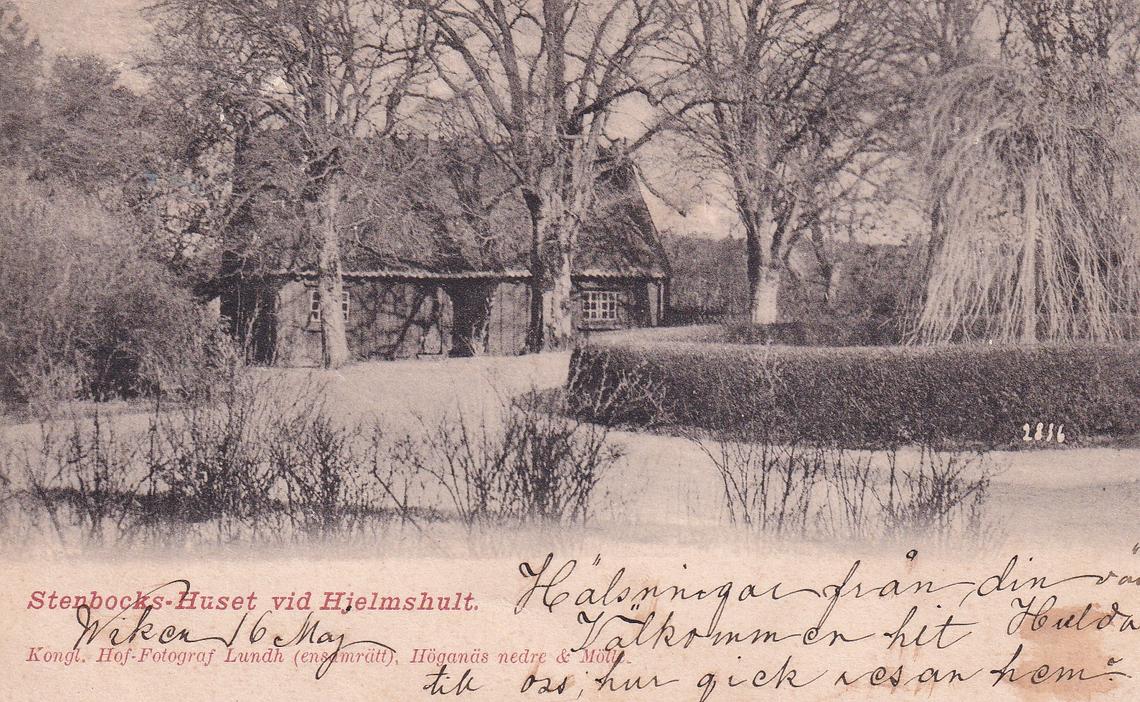 2816
Stenbocks-Huset vid Hjelmshult.
Wiken 16 Maj
Kongl. Hof-Fotograf Lundh (ensamrätt), Höganäs nedre & Mölle.
Hälsningar från din
Hulda
Välkommen hit
till oss, hur gick resan hem?